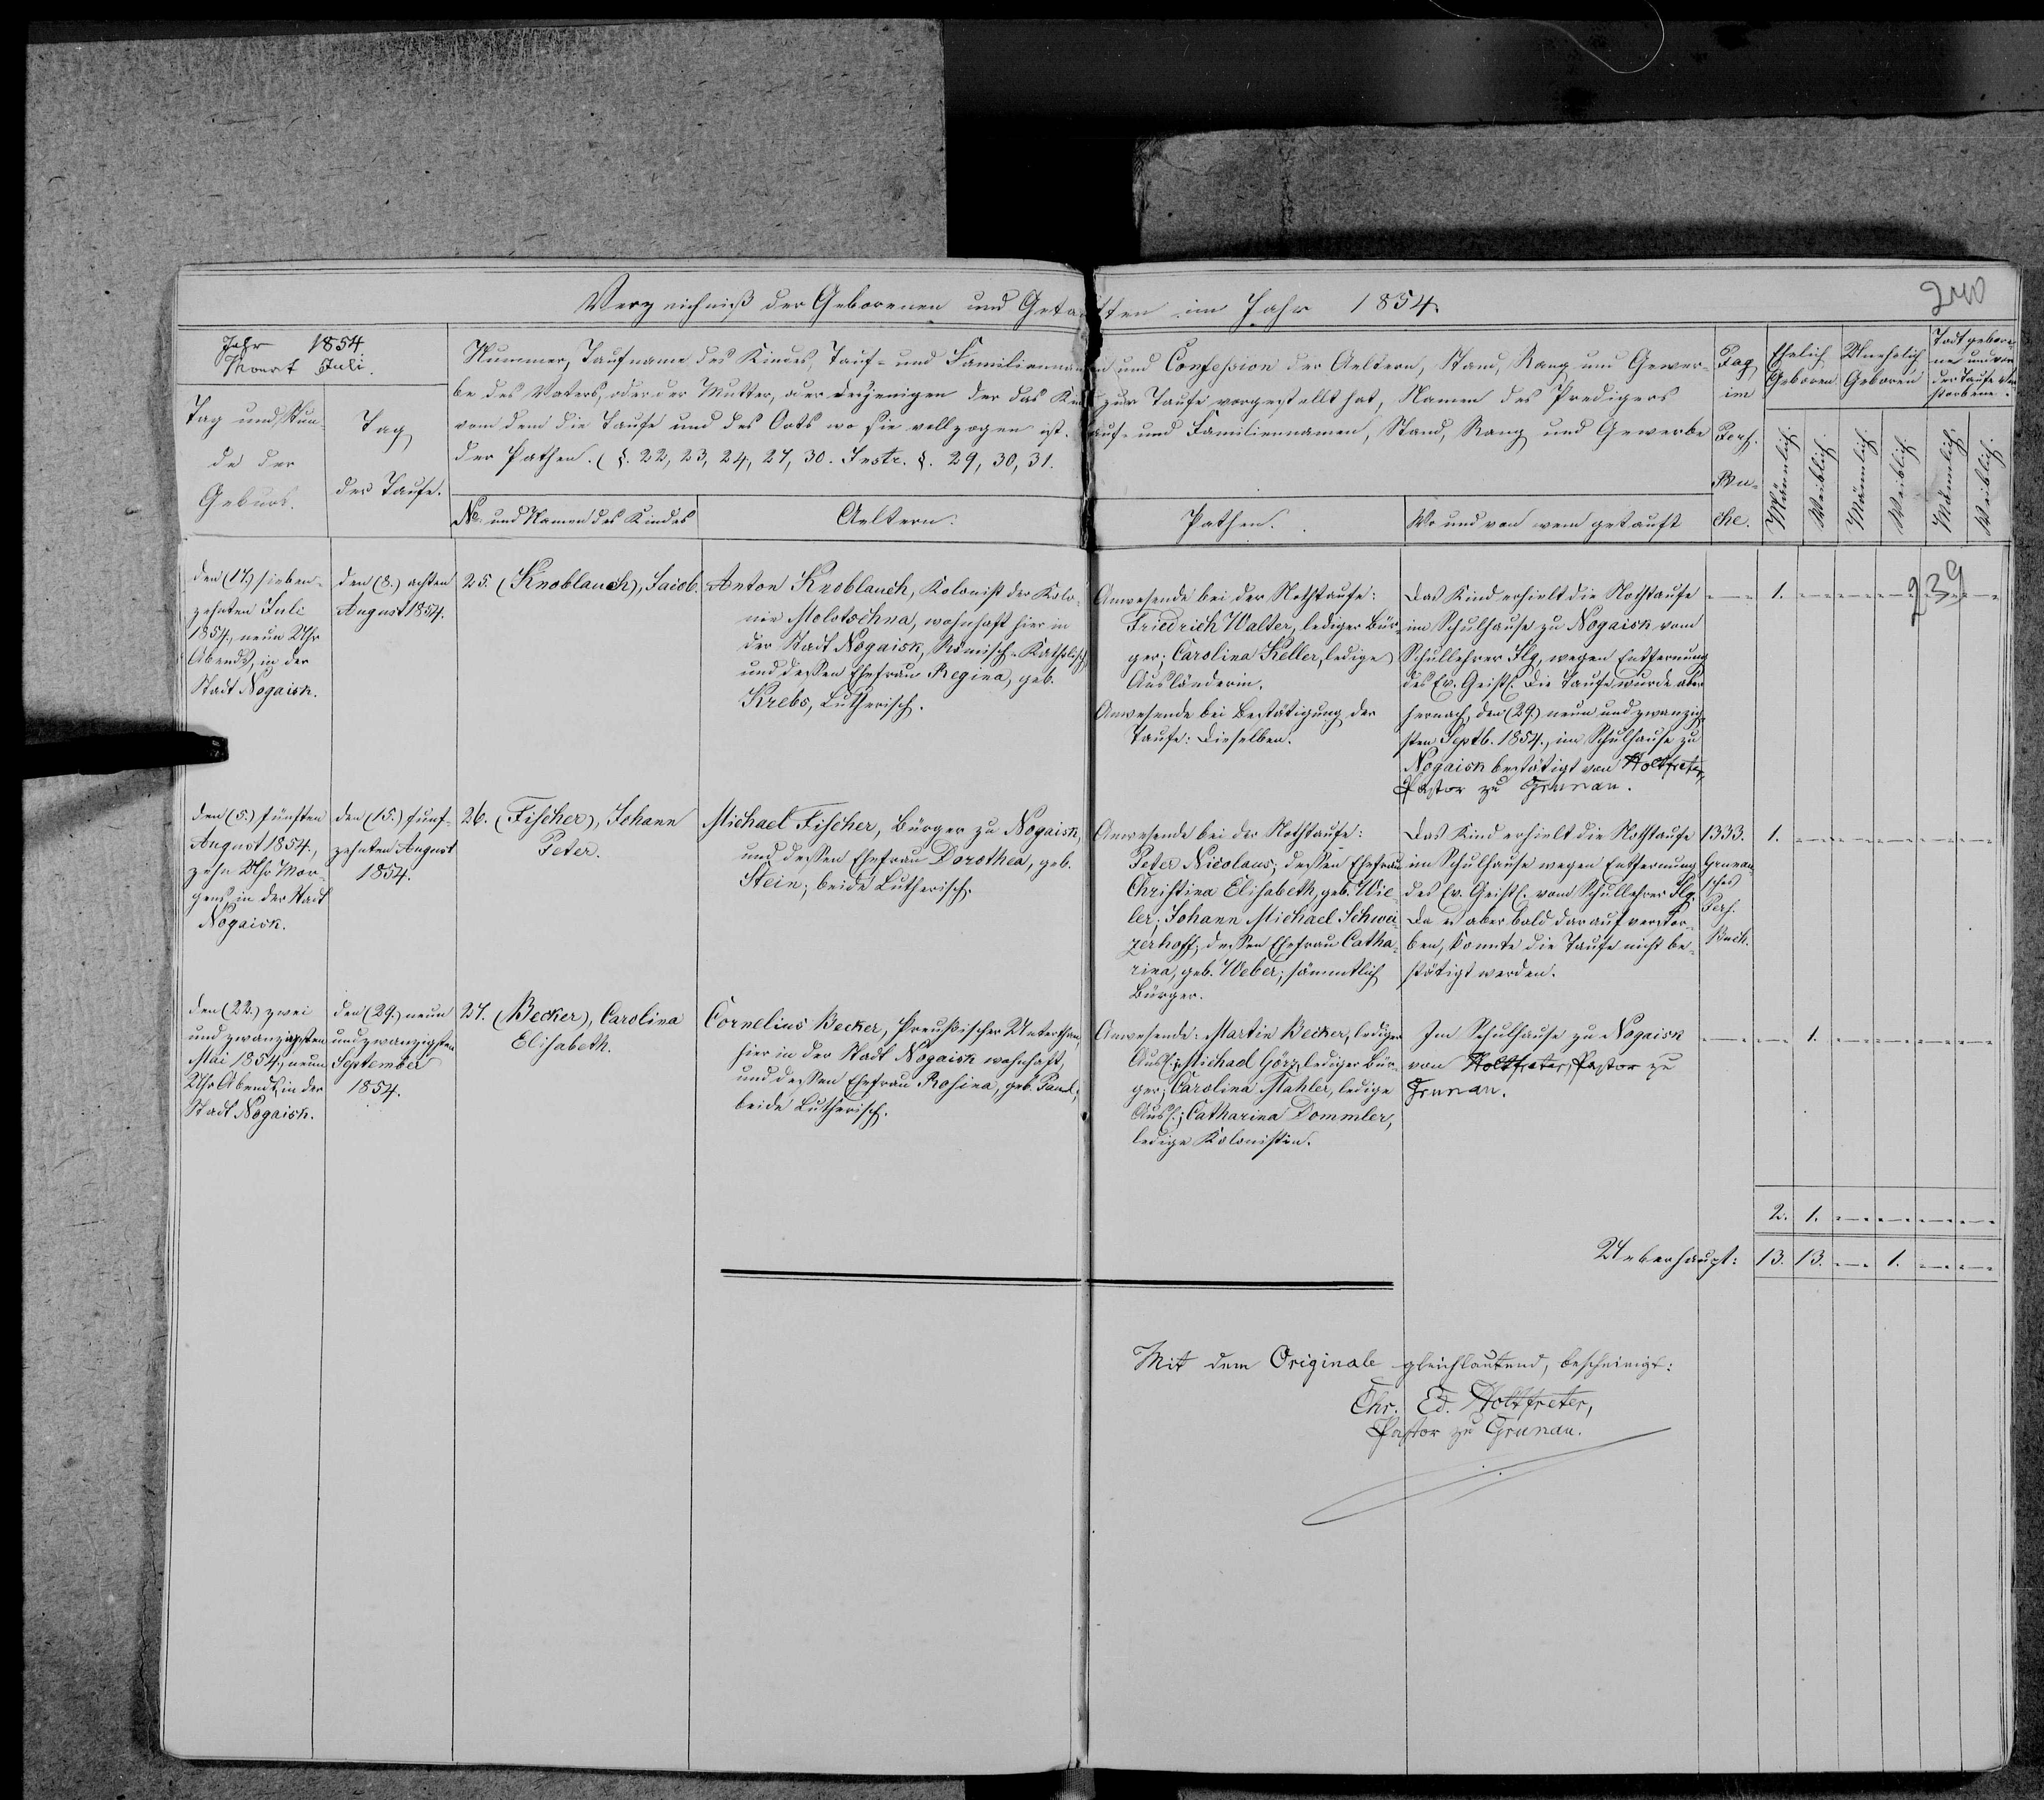 Verzeichniß der Geborenen und Getauften im Jahr 1854.
240
Jahr 1854
Monat Juli.
Tag und Stun-
de der
Geburt.
Tag
der Taufe.
Nummer, Taufname des Kindes, Tauf- und Familiennamen und Confession der Aeltern, Stand, Rang und Gewer-
be des Vaters, oder der Mutter, oder derjenigen der das Kind zur Taufe vorgestellt hat, Namen des Predigers
von dem die Taufe und des Orts wo sie vollzogen ist. Tauf- und Familiennamen, Stand, Rang und Gewerbe
der Pathen. (§. 22, 23, 24, 27, 30. Instr. §. 29, 30, 31.
No. und Namen des Kindes
Aeltern.
Pathen.
Wo und von wem getauft
Pag.
im
Pers.
Bu-
che.
Ehelich
Geboren
Unehelich
Geboren
Todtgebore-
ne und vor
der Taufe ver-
storbene.
Männlich.
Weiblich.
Männlich.
Weiblich.
Männlich.
Weiblich.
239
den (17.) sieben-
zehnten Juli
1854., neun Uhr
Abends, in der
Stadt Nogaisk.
den (8.) achten
August 1854.
25. (Knoblauch), Jacob.
Anton Knoblauch, Kolonist der Kolo-
nie Molotschna, wohnhaft hier in
der Stadt Nogaisk, Römisch-Katholisch,
und dessen Ehefrau Regina, geb.
Krebs, Lutherisch.
Anwesende bei der Nothtaufe:
Friedrich Walter, lediger Bür-
ger; Carolina Keller, ledige
Ausländerin.
Anwesende bei Bestätigung der
Taufe: dieselben.
Das Kind erhielt die Nothtaufe
im Schulhause zu Nogaisk vom
Schullehrer Ilg, wegen Entfernung
des Ev. Geistl. Die Taufe wurde aber
hernach, den (29.) neun und zwanzig-
sten Septb. 1854., im Schulhause zu
Nogaisk bestätigt von Holtfreter,
Pastor zu Grunau.
1.
den (5.) fünften
August 1854.,
zehn Uhr Mor-
gens, in der Stadt
Nogaisk.
den (15.) funf-
zehnten August
1854.
26. (Fischer), Johann
Peter.
Michael Fischer, Bürger zu Nogaisk,
und dessen Ehefrau Dorothea, geb.
Stein; beide Lutherisch.
Anwesende bei der Nothtaufe:
Peter Nicolaus; dessen Ehefrau
Christina Elisabeth, geb. Wie-
ler; Johann Michael Schwei-
zerhoff; dessen Ehefrau Catha-
rina, geb. Weber; sämmtlich
Bürger.
Das Kind erhielt die Nothtaufe
im Schulhause wegen Entfernung
des Ev. Geistl. vom Schullehrer Ilg.
Da es aber bald darauf verstor-
ben, konnte die Taufe nicht be-
stätigt werden.
1333.
Grunau-
sches
Pers.
Buch.
1.
den (22.) zwei
und zwanzigsten
Mai 1854., neun
Uhr Abends, in der
Stadt Nogaisk.
den (29.) neun
und zwanzigsten
September
1854.
27. (Becker), Carolina
Elisabeth.
Cornelius Becker, Preußischer Unterthan,
hier in der Stadt Nogaisk wohnhaft,
und dessen Ehefrau Rosina, geb. Paul;
beide Lutherisch.
Anwesende: Martin Becker, lediger
Ausl.; Michael Görz, lediger Bür-
ger; Carolina Mahler, ledige
Ausl.; Catharina Dommler,
ledige Kolonistin.
Im Schulhause zu Nogaisk
von Holtfreter, Pastor zu
Grunau.
1.
2. 1.
Ueberhaupt: 13. 13. 1.
Mit dem Originale gleichlautend, bescheinigt:
Chr. Ed. Holtfreter,
Pastor zu Grunau.